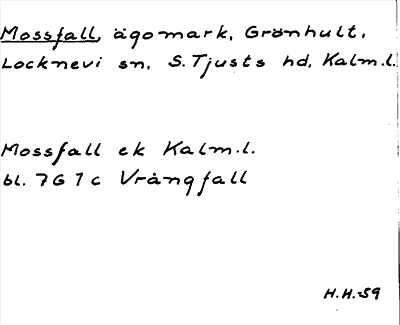 Mossfall, ägomark, Grönhult,
Locknevi sn, S. Tjusts hd, Kalm.l.
Mossfall ek Kalm.l.
bl. 7G1c Vrångfall
H.H.-59